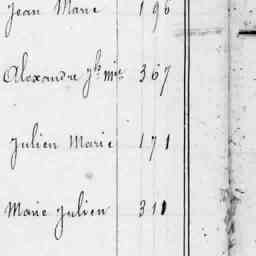 Jean Marie 196
Alexandre Jh Mie 367
Julien Marie 171
Marie Julien 311